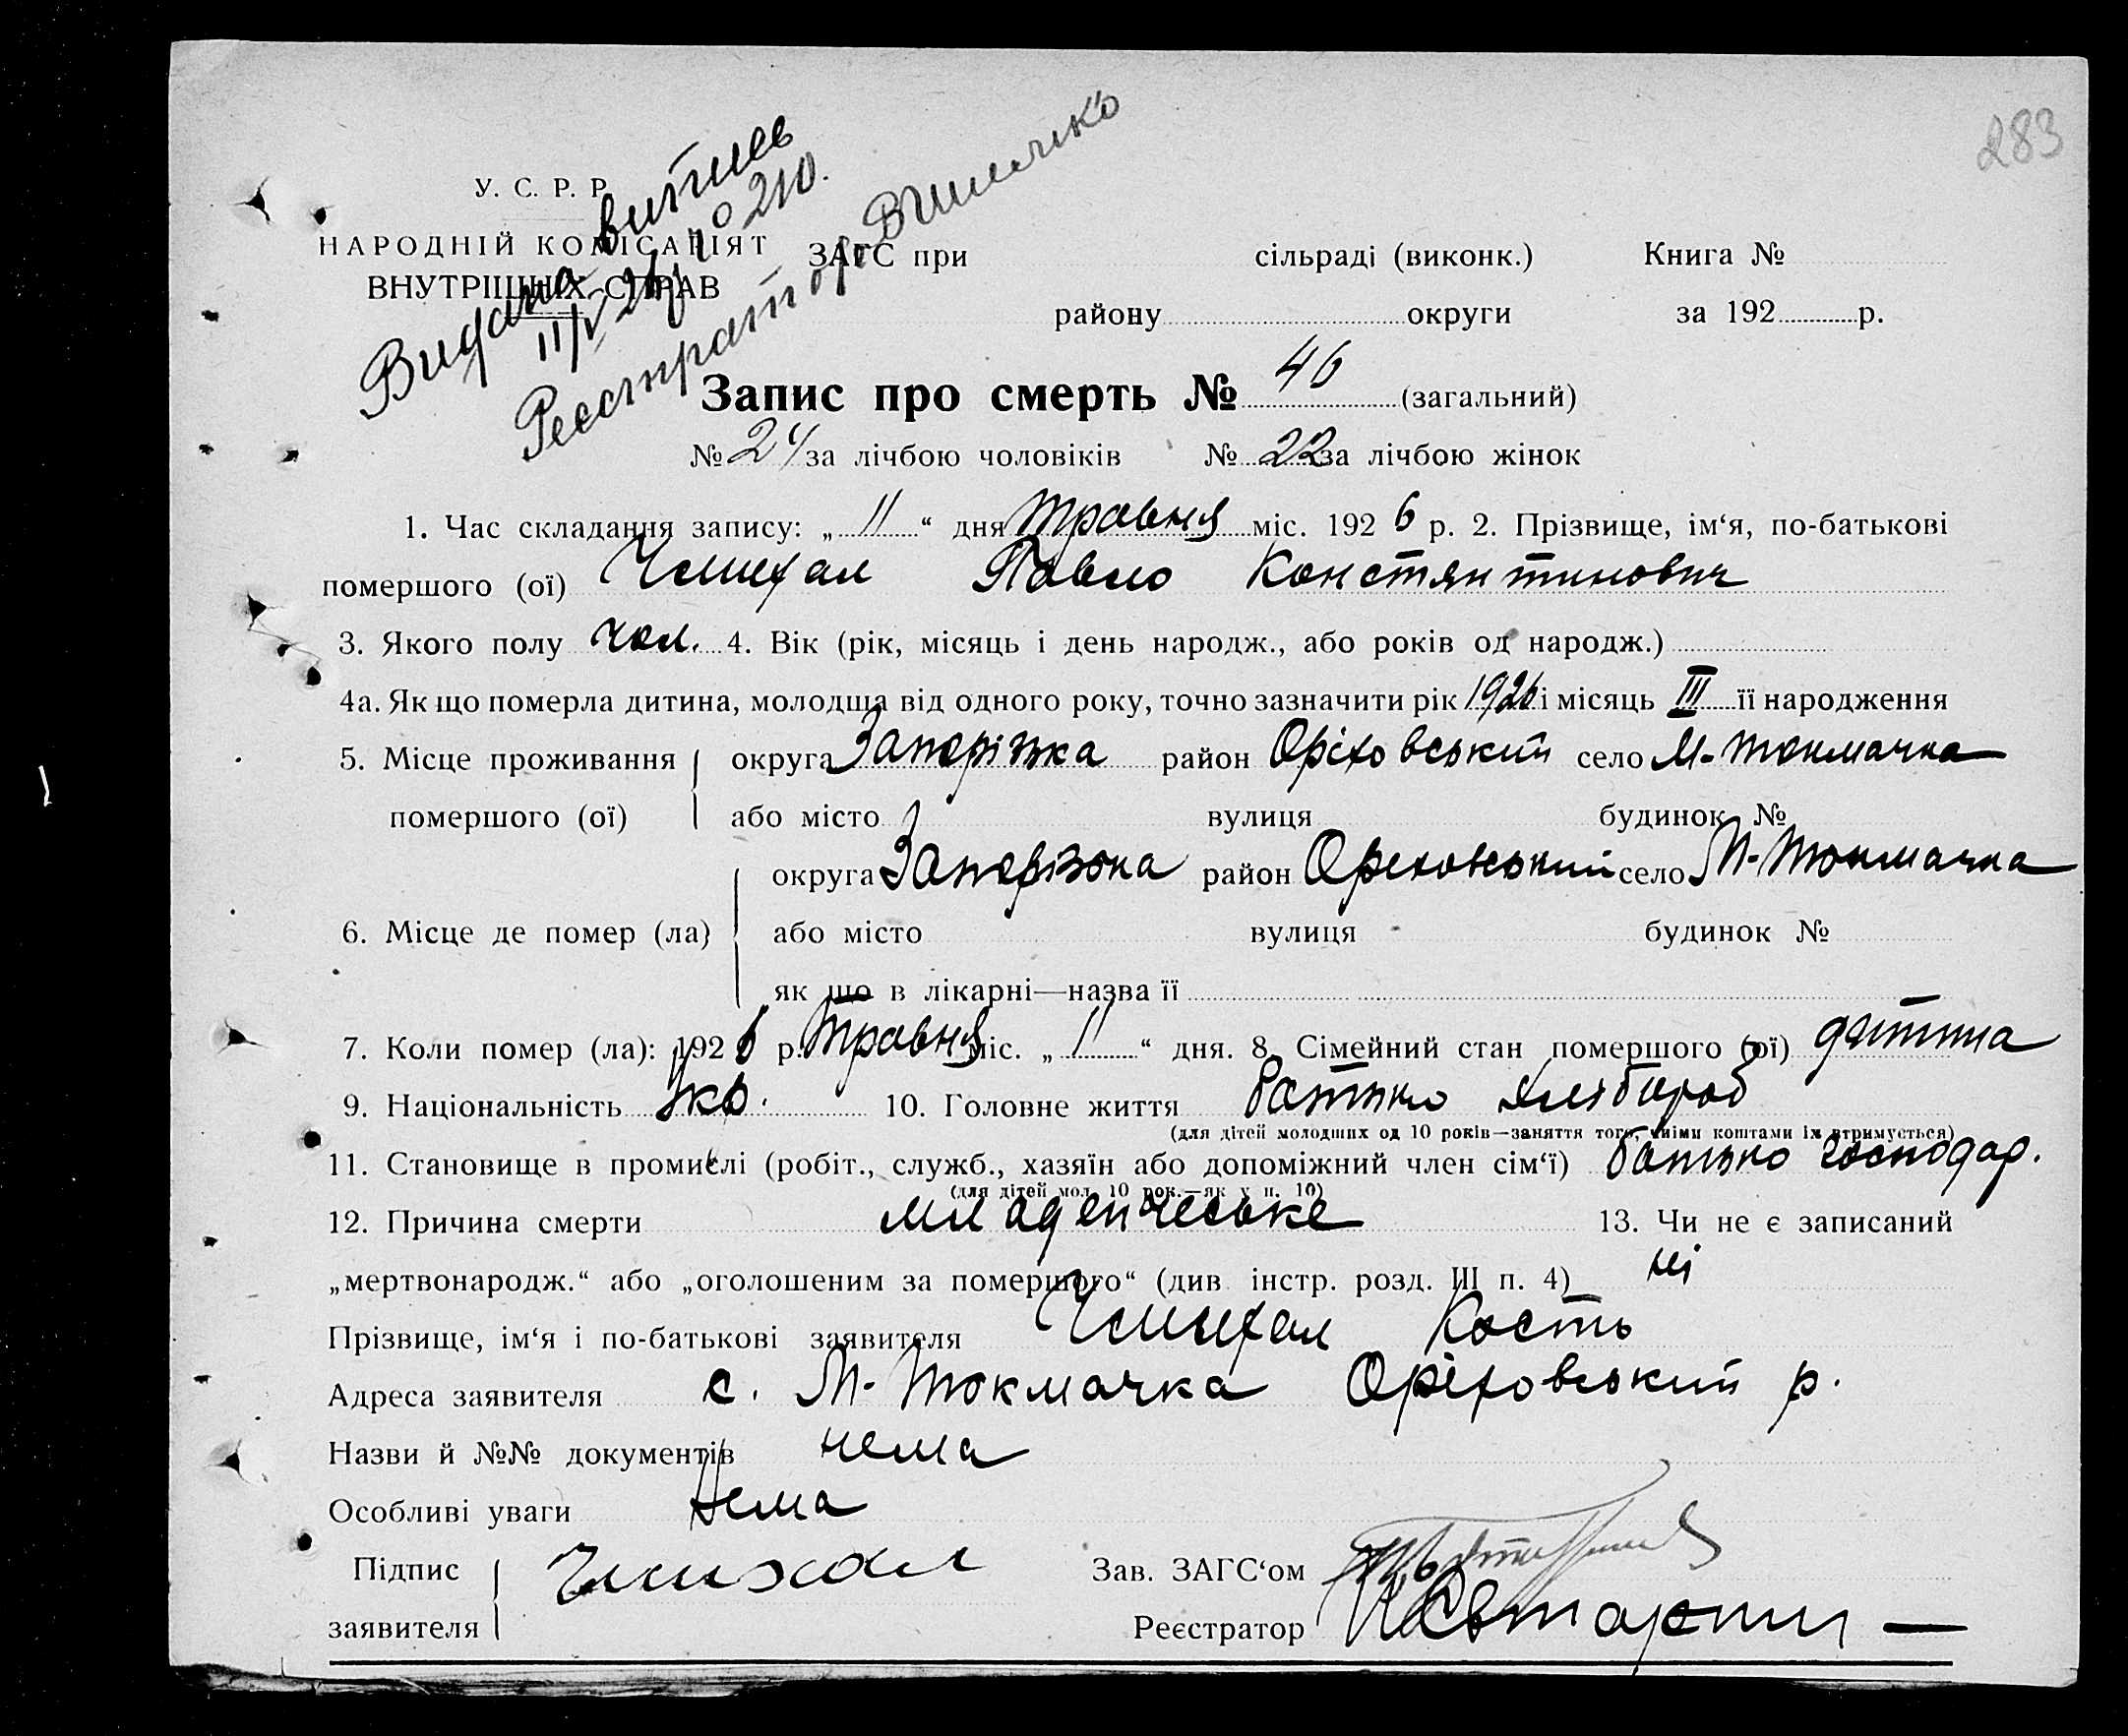 283
Видана витись
11/V 26 р. № 210.
Реєстратор
У. С. Р. Р.
НАРОДНІЙ КОМІСАРІЯТ
ВНУТРІШНІХ СПРАВ
ЗАГС при сільраді (виконк.) Книга №
району округи за 192 р.
Запис про смерть № 46 (загальний)
№ 24 за лічбою чоловіків № 22 за лічбою жінок
1. Час складання запису: „ 11 “ дня Травня міс. 192 6 р. 2. Прізвище, ім‘я, по-батькові
помершого (ої) Павло Констянтинович
3. Якого полу чол. 4. Вік (рік, місяць і день народж., або років од народж.)
4а. Як що померла дитина, молодша від одного року, точно зазначити рік 1926 і місяць III її народження
5. Місце проживання округа Запоріжка район Оріховський село М-Токмачка
помершого (ої) або місто вулиця будинок №
округа Запорізька район Ореховський село М-Токмачка
6. Місце де помер (ла) або місто вулиця будинок №
як що в лікарні—назва її
7. Коли помер (ла): 192 6 р. Травня міс. „ 11 “ дня. 8. Сімейний стан помершого (ої) дитина
9. Національність Укр. 10. Головне життя батько хлібороб
(для дітей молодших од 10 років—заняття того, чиїми коштами їх втримується)
11. Становище в промислі (робіт., служб., хазяїн або допоміжний член сім‘ї) батько господар.
(для дітей мол. 10 рок.—як у п. 10)
12. Причина смерти младенческе 13. Чи не є записаний
„мертвонародж.“ або „оголошеним за помершого“ (див. інстр. розд. III п. 4) ні
Прізвище, ім‘я і по-батькові заявителя Кость
Адреса заявителя с. М-Токмачка Оріховський р.
Назви й №№ документів нема
Особливі уваги Нема
Підпис Зав. ЗАГС‘ом
заявителя Реєстратор